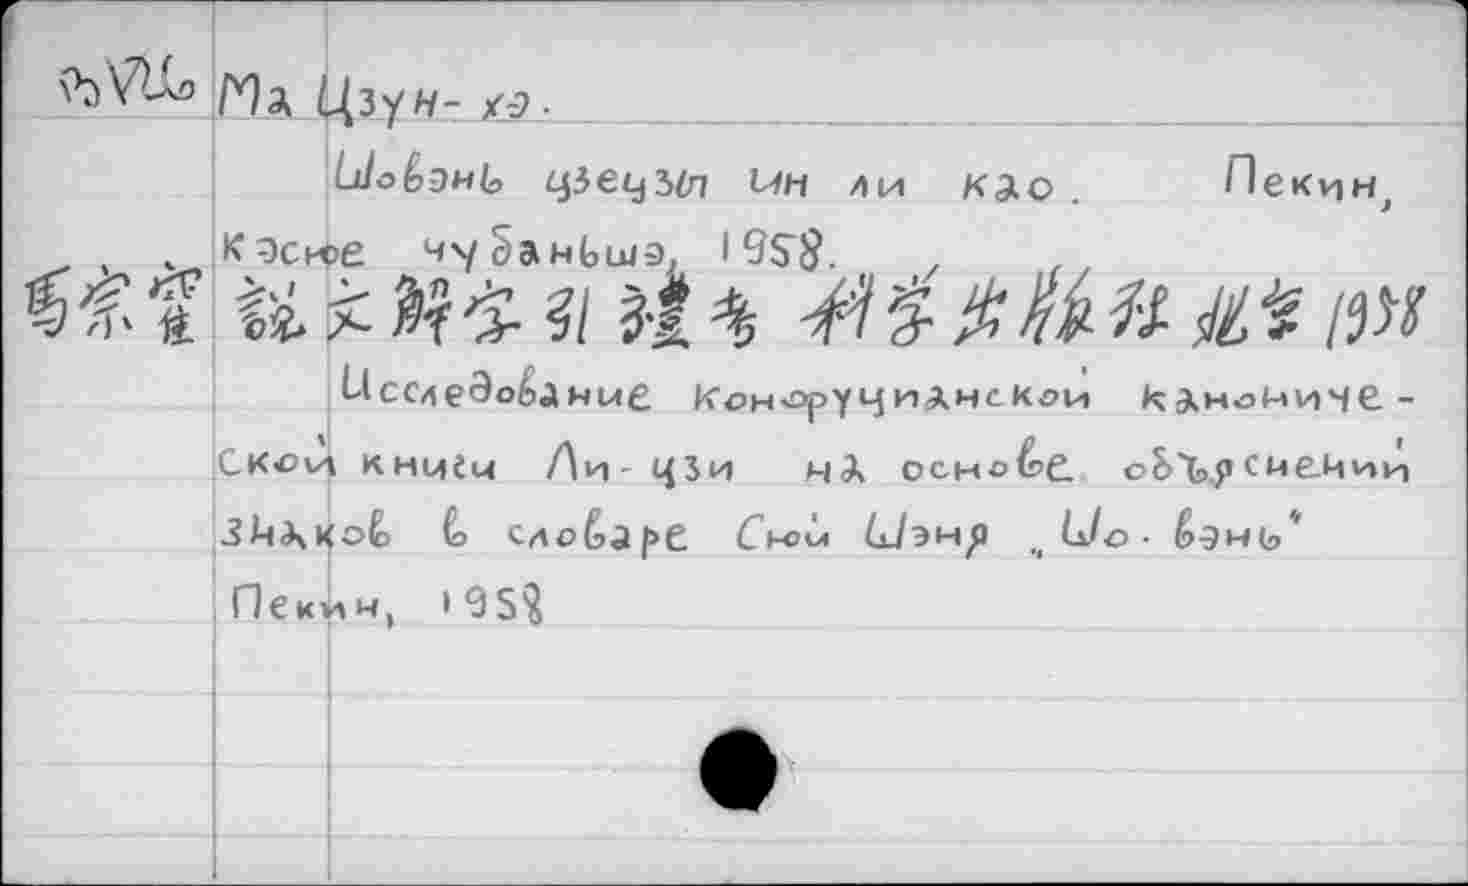 Ма Цзун-хэ.
Шовэнь цзецзы ин ли као. Пекин,
Кэсюе чубаньшэ, 1958.
馬宗霍 說文解字引禮考 科学出版社 北京 1958
Исследование конфуцианской канониче-
ской книги Ли-цзи на основе объяснений
знаков в словаре Сюй Шэня „Шо-вэнь"
Пекин, 1958